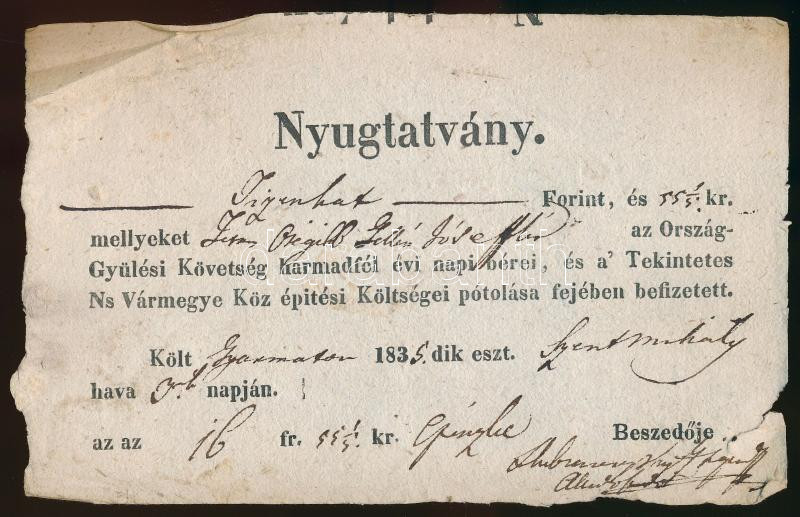 Nyugtatvány.
Tizenhat Forint, és 55 kr.
mellyeket József az Ország-
Gyülési Követség harmadfél évi napi bérei, és a' Tekintetes
Ns Vármegye Köz épitési Költségei pótolása fejében befizetett.
Költ Gyarmaton 1835.dik eszt. Szent mihály
hava napján.
az az 16 fr. 55 kr. Beszedője